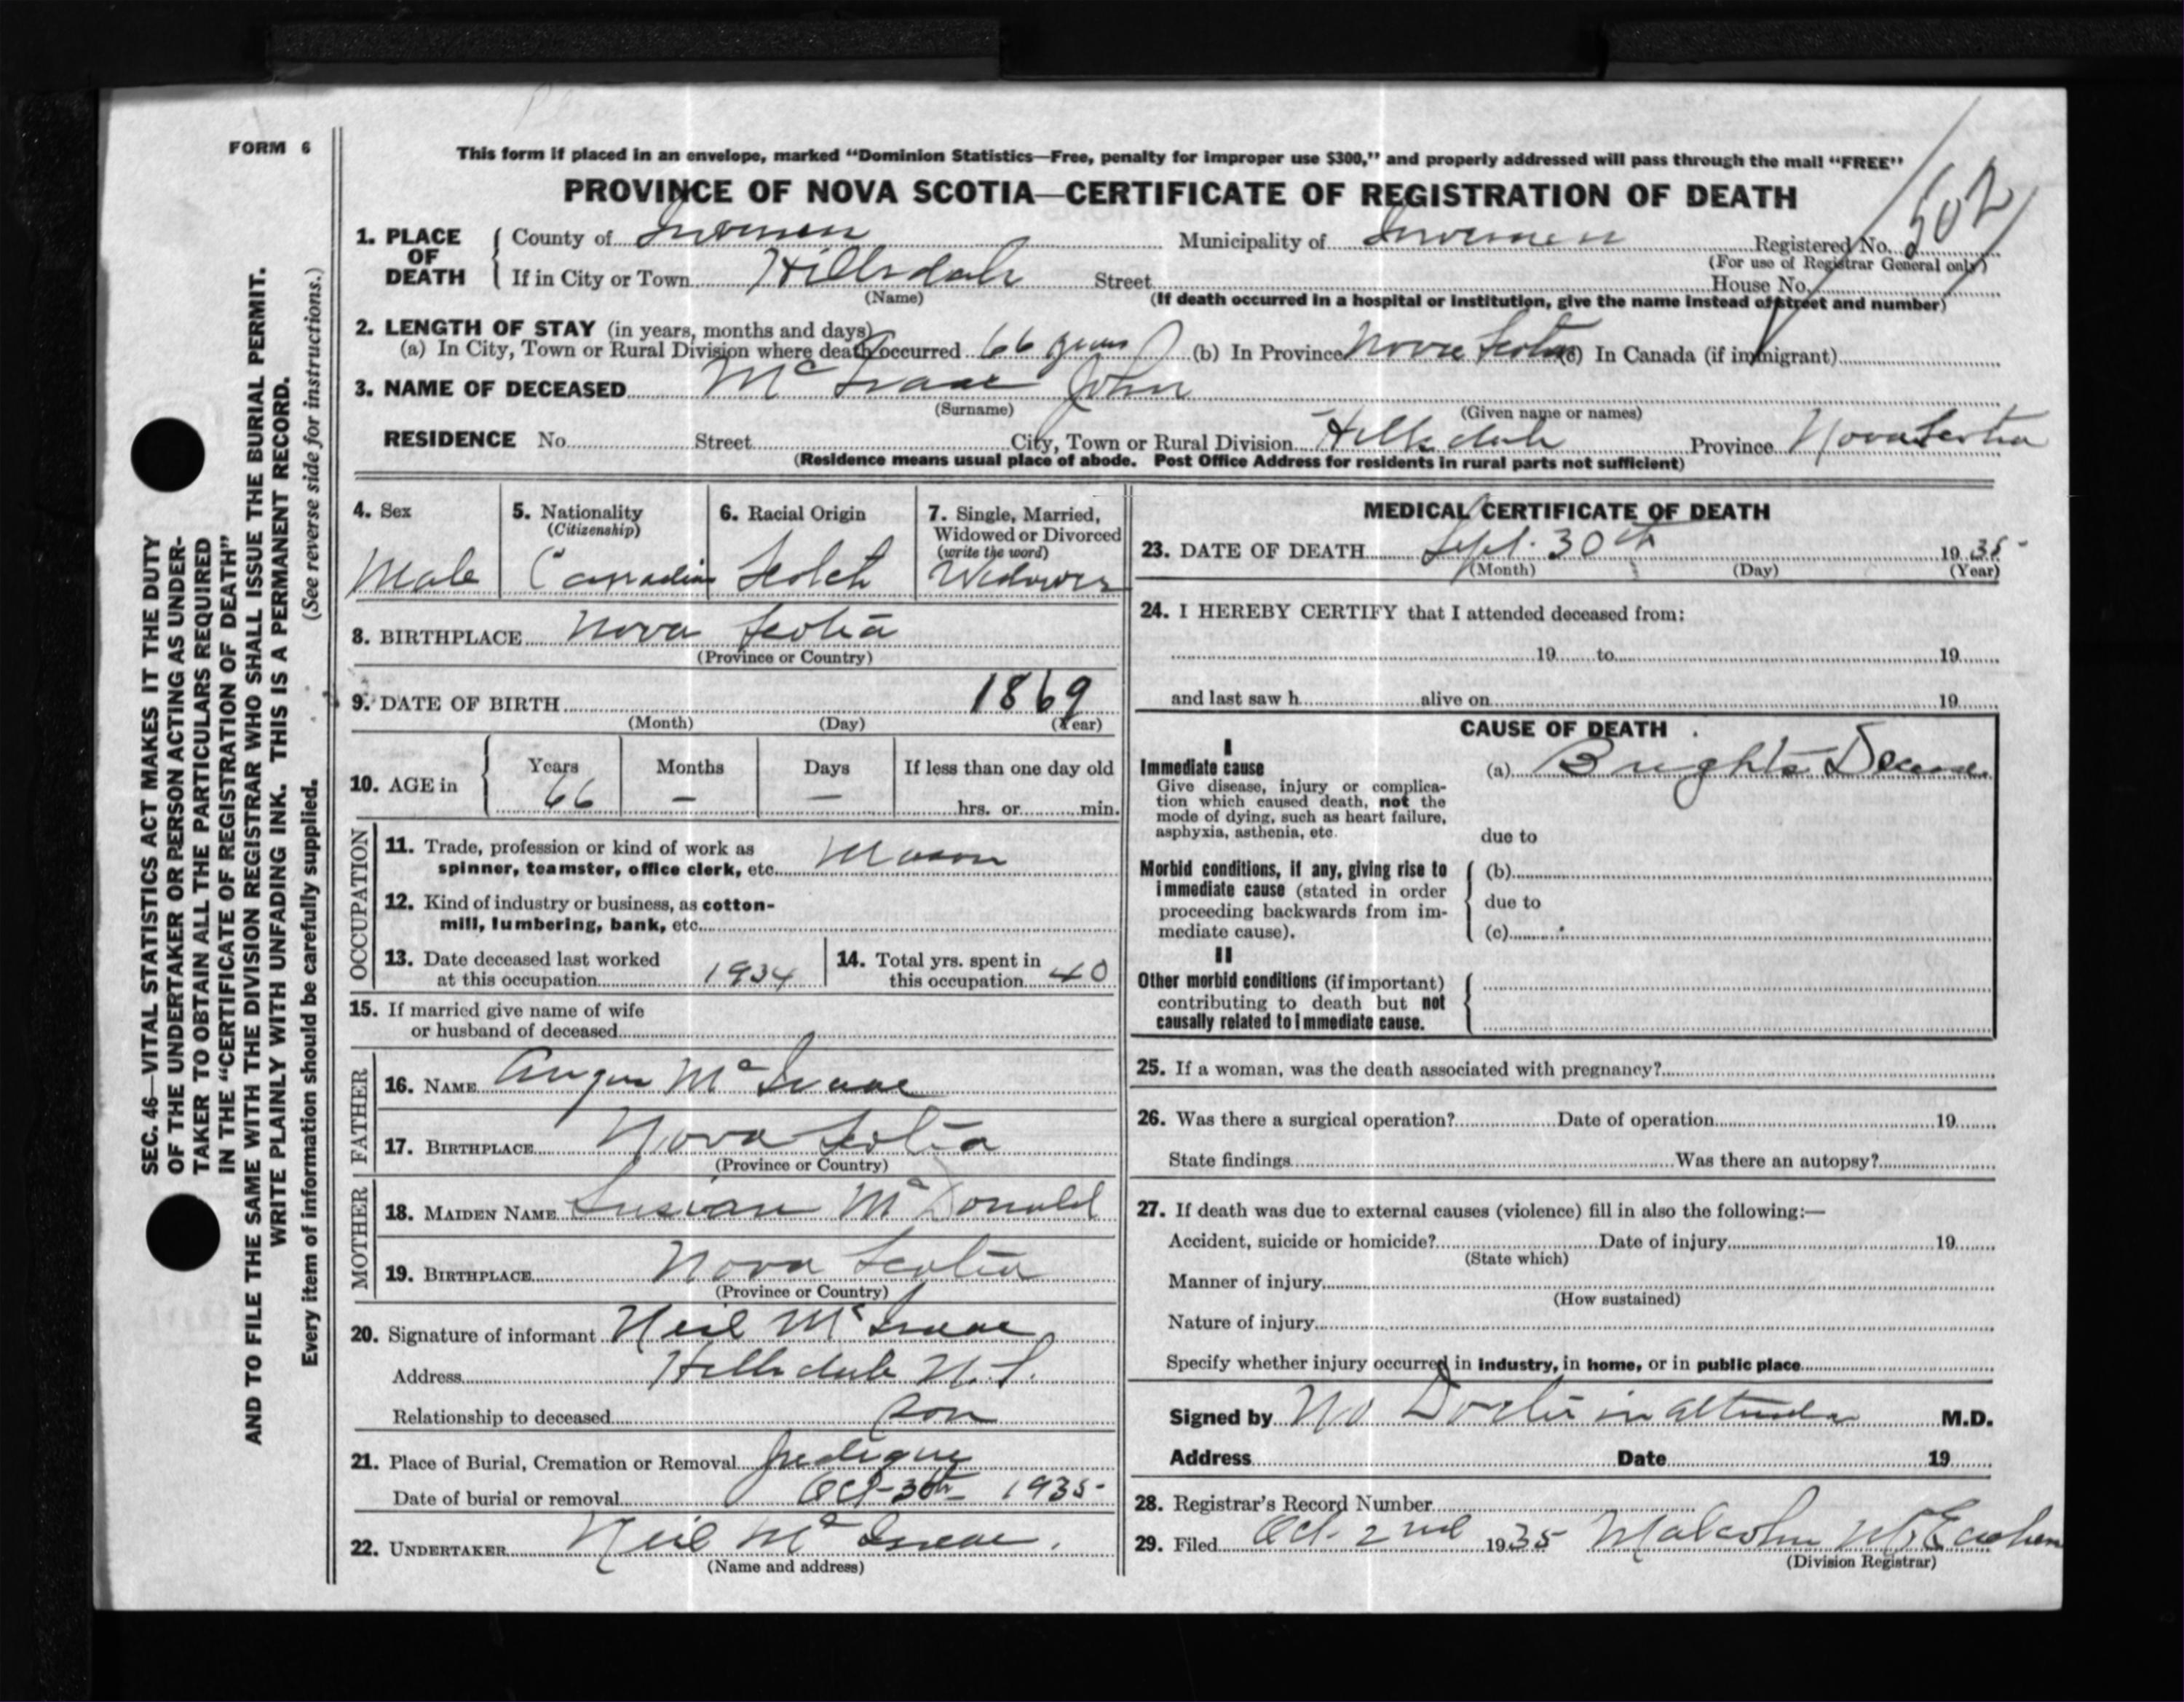 FORM 6
This form if placed in an envelope, marked "Dominion Statistics—Free, penalty for improper use $300," and properly addressed will pass through the mail "FREE"
PROVINCE OF NOVA SCOTIA—CERTIFICATE OF REGISTRATION OF DEATH
1. PLACE OF DEATH County of Inverness Municipality of Inverness Registered No. 502
(For use of Registrar General only)
If in City or Town Hillsdale Street House No.
(Name) (If death occurred in a hospital or institution, give the name instead of street and number)
2. LENGTH OF STAY (in years, months and days)
(a) In City, Town or Rural Division where death occurred 66 years (b) In Province Nova Scotia (c) In Canada (if immigrant)
3. NAME OF DECEASED Mc Isaac John
(Surname) (Given name or names)
RESIDENCE No. Street City, Town or Rural Division Hillsdale Province Nova Scotia
(Residence means usual place of abode. Post Office Address for residents in rural parts not sufficient)
4. Sex
Male
5. Nationality
(Citizenship)
Canadian
6. Racial Origin
Scotch
7. Single, Married,
Widowed or Divorced
(write the word)
Widower
8. BIRTHPLACE Nova Scotia
(Province or Country)
9. DATE OF BIRTH 1869
(Month) (Day) (Year)
10. AGE in Years Months Days If less than one day old
66 — — hrs. or min.
OCCUPATION
11. Trade, profession or kind of work as
spinner, teamster, office clerk, etc. Mason
12. Kind of industry or business, as cotton-
mill, lumbering, bank, etc.
13. Date deceased last worked
at this occupation 1934
14. Total yrs. spent in
this occupation 40
15. If married give name of wife
or husband of deceased
FATHER
16. NAME Angus Mc Isaac
17. BIRTHPLACE Nova Scotia
(Province or Country)
MOTHER
18. MAIDEN NAME Mc Donald
19. BIRTHPLACE Nova Scotia
(Province or Country)
20. Signature of informant Neil Mc Isaac
Address Hillsdale N.S.
Relationship to deceased Son
21. Place of Burial, Cremation or Removal
Date of burial or removal Oct 1935
22. UNDERTAKER Neil Mc Isaac
(Name and address)
MEDICAL CERTIFICATE OF DEATH
23. DATE OF DEATH Sept. 30th 1935
(Month) (Day) (Year)
24. I HEREBY CERTIFY that I attended deceased from:
19 to 19
and last saw h alive on 19
CAUSE OF DEATH
I
Immediate cause
Give disease, injury or complica-
tion which caused death, not the
mode of dying, such as heart failure,
asphyxia, asthenia, etc.
(a) Brights Decease
due to
Morbid conditions, if any, giving rise to
immediate cause (stated in order
proceeding backwards from im-
mediate cause).
(b)
due to
(c)
II
Other morbid conditions (if important)
contributing to death but not
causally related to immediate cause.
25. If a woman, was the death associated with pregnancy?
26. Was there a surgical operation? Date of operation 19
State findings Was there an autopsy?
27. If death was due to external causes (violence) fill in also the following:—
Accident, suicide or homicide? Date of injury 19
(State which)
Manner of injury
(How sustained)
Nature of injury
Specify whether injury occurred in industry, in home, or in public place
Signed by No Doctor in M.D.
Address Date 19
28. Registrar's Record Number
29. Filed Oct. 2nd 1935 Malcolm McEachen
(Division Registrar)
SEC. 46—VITAL STATISTICS ACT MAKES IT THE DUTY
OF THE UNDERTAKER OR PERSON ACTING AS UNDER-
TAKER TO OBTAIN ALL THE PARTICULARS REQUIRED
IN THE "CERTIFICATE OF REGISTRATION OF DEATH"
AND TO FILE THE SAME WITH THE DIVISION REGISTRAR WHO SHALL ISSUE THE BURIAL PERMIT.
WRITE PLAINLY WITH UNFADING INK. THIS IS A PERMANENT RECORD.
Every item of information should be carefully supplied. (See reverse side for instructions.)